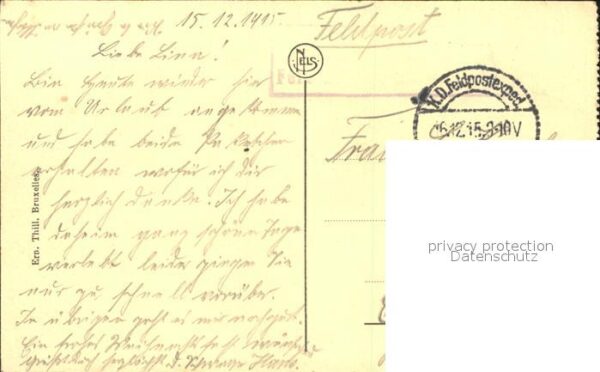 15.12.1915.
Feldpost
Liebe Lina!
NELS
Bin heute wieder hier
vom Urlaub angekommen
und habe beide Paketchen
erhalten wofür ich dir
herzlich danke. Ich habe
daheim ganz schöne Tage
verlebt leider gingen Sie
nur zu schnell vorüber.
Im übrigen geht es mir noch gut.
Ein frohes Weihnachtsfest wünscht
d. Schwager Hans.
K.D. Feldpostexped.
15.12.15. 9-10V
Frau
privacy protection
Datenschutz
Ern. Thill, Bruxelles